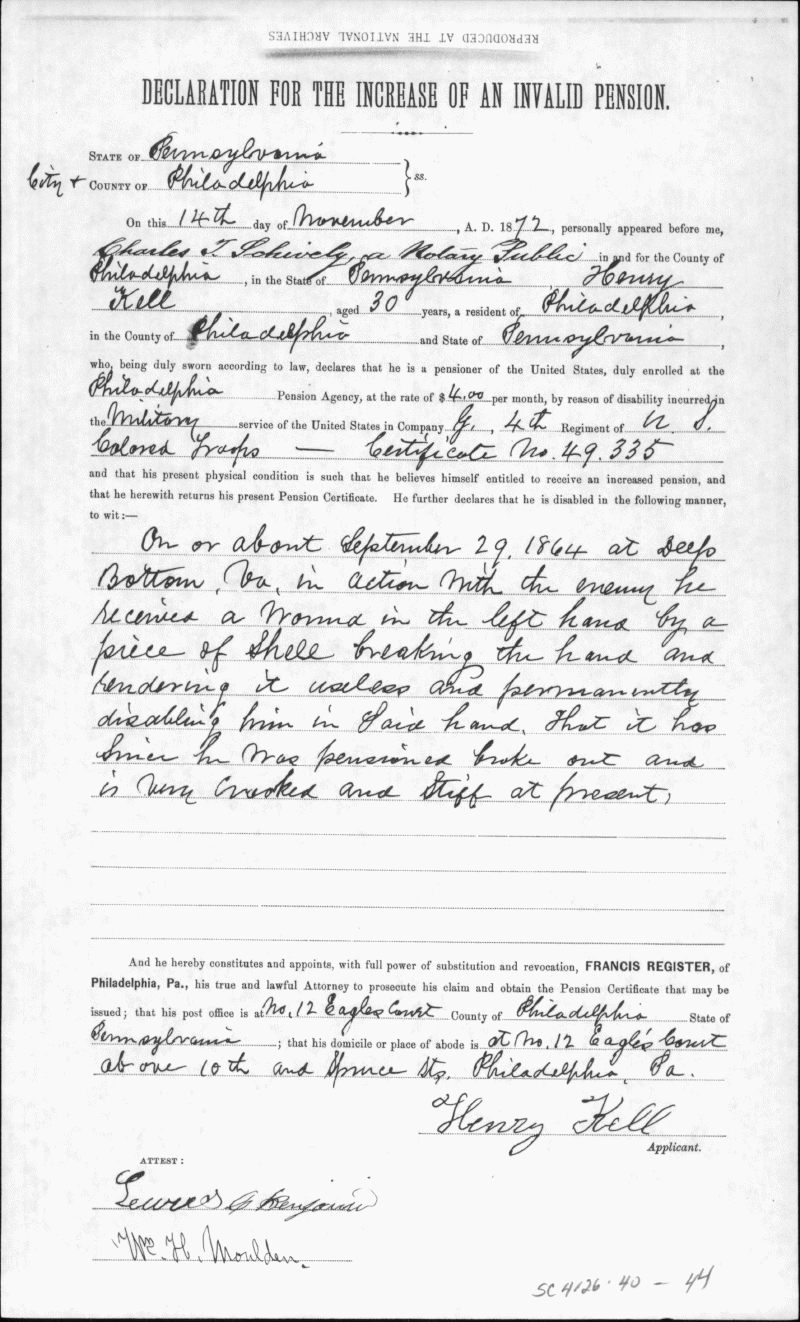 REPRODUCED AT THE NATIONAL ARCHIVES
DECLARATION FOR THE INCREASE OF AN INVALID PENSION.
STATE OF Pennsylvania
City + COUNTY OF Philadelphia } ss.
On this 14th day of November, A. D. 1872, personally appeared before me,
Charles T. Schively, a Notary Public in and for the County of
Philadelphia, in the State of Pennsylvania Henry
Kell, aged 30 years, a resident of Philadelphia,
in the County of Philadelphia and State of Pennsylvania,
who, being duly sworn according to law, declares that he is a pensioner of the United States, duly enrolled at the
Philadelphia Pension Agency, at the rate of $4.00 per month, by reason of disability incurred in
the Military service of the United States in Company G., 4th Regiment of U. S.
Colored Troops — Certificate No. 49.335
and that his present physical condition is such that he believes himself entitled to receive an increased pension, and
that he herewith returns his present Pension Certificate. He further declares that he is disabled in the following manner,
to wit:—
On or about September 29, 1864 at Deep
Bottom, Va, in action with the enemy he
received a wound in the left hand by a
piece of Shell breaking the hand and
rendering it useless and permanently
disabling him in said hand. That it has
since he was pensioned broke out and
is very crooked and stiff at present,
And he hereby constitutes and appoints, with full power of substitution and revocation, FRANCIS REGISTER, of
Philadelphia, Pa., his true and lawful Attorney to prosecute his claim and obtain the Pension Certificate that may be
issued; that his post office is at No. 12 Eagles Court County of Philadelphia State of
Pennsylvania; that his domicile or place of abode is at No. 12 Eagle's Court
above 10th and Spruce Sts. Philadelphia, Pa.
Henry Kell
Applicant.
ATTEST:
G Benjamin
Wm. H. Moulden.
SC 4126·40 — 44